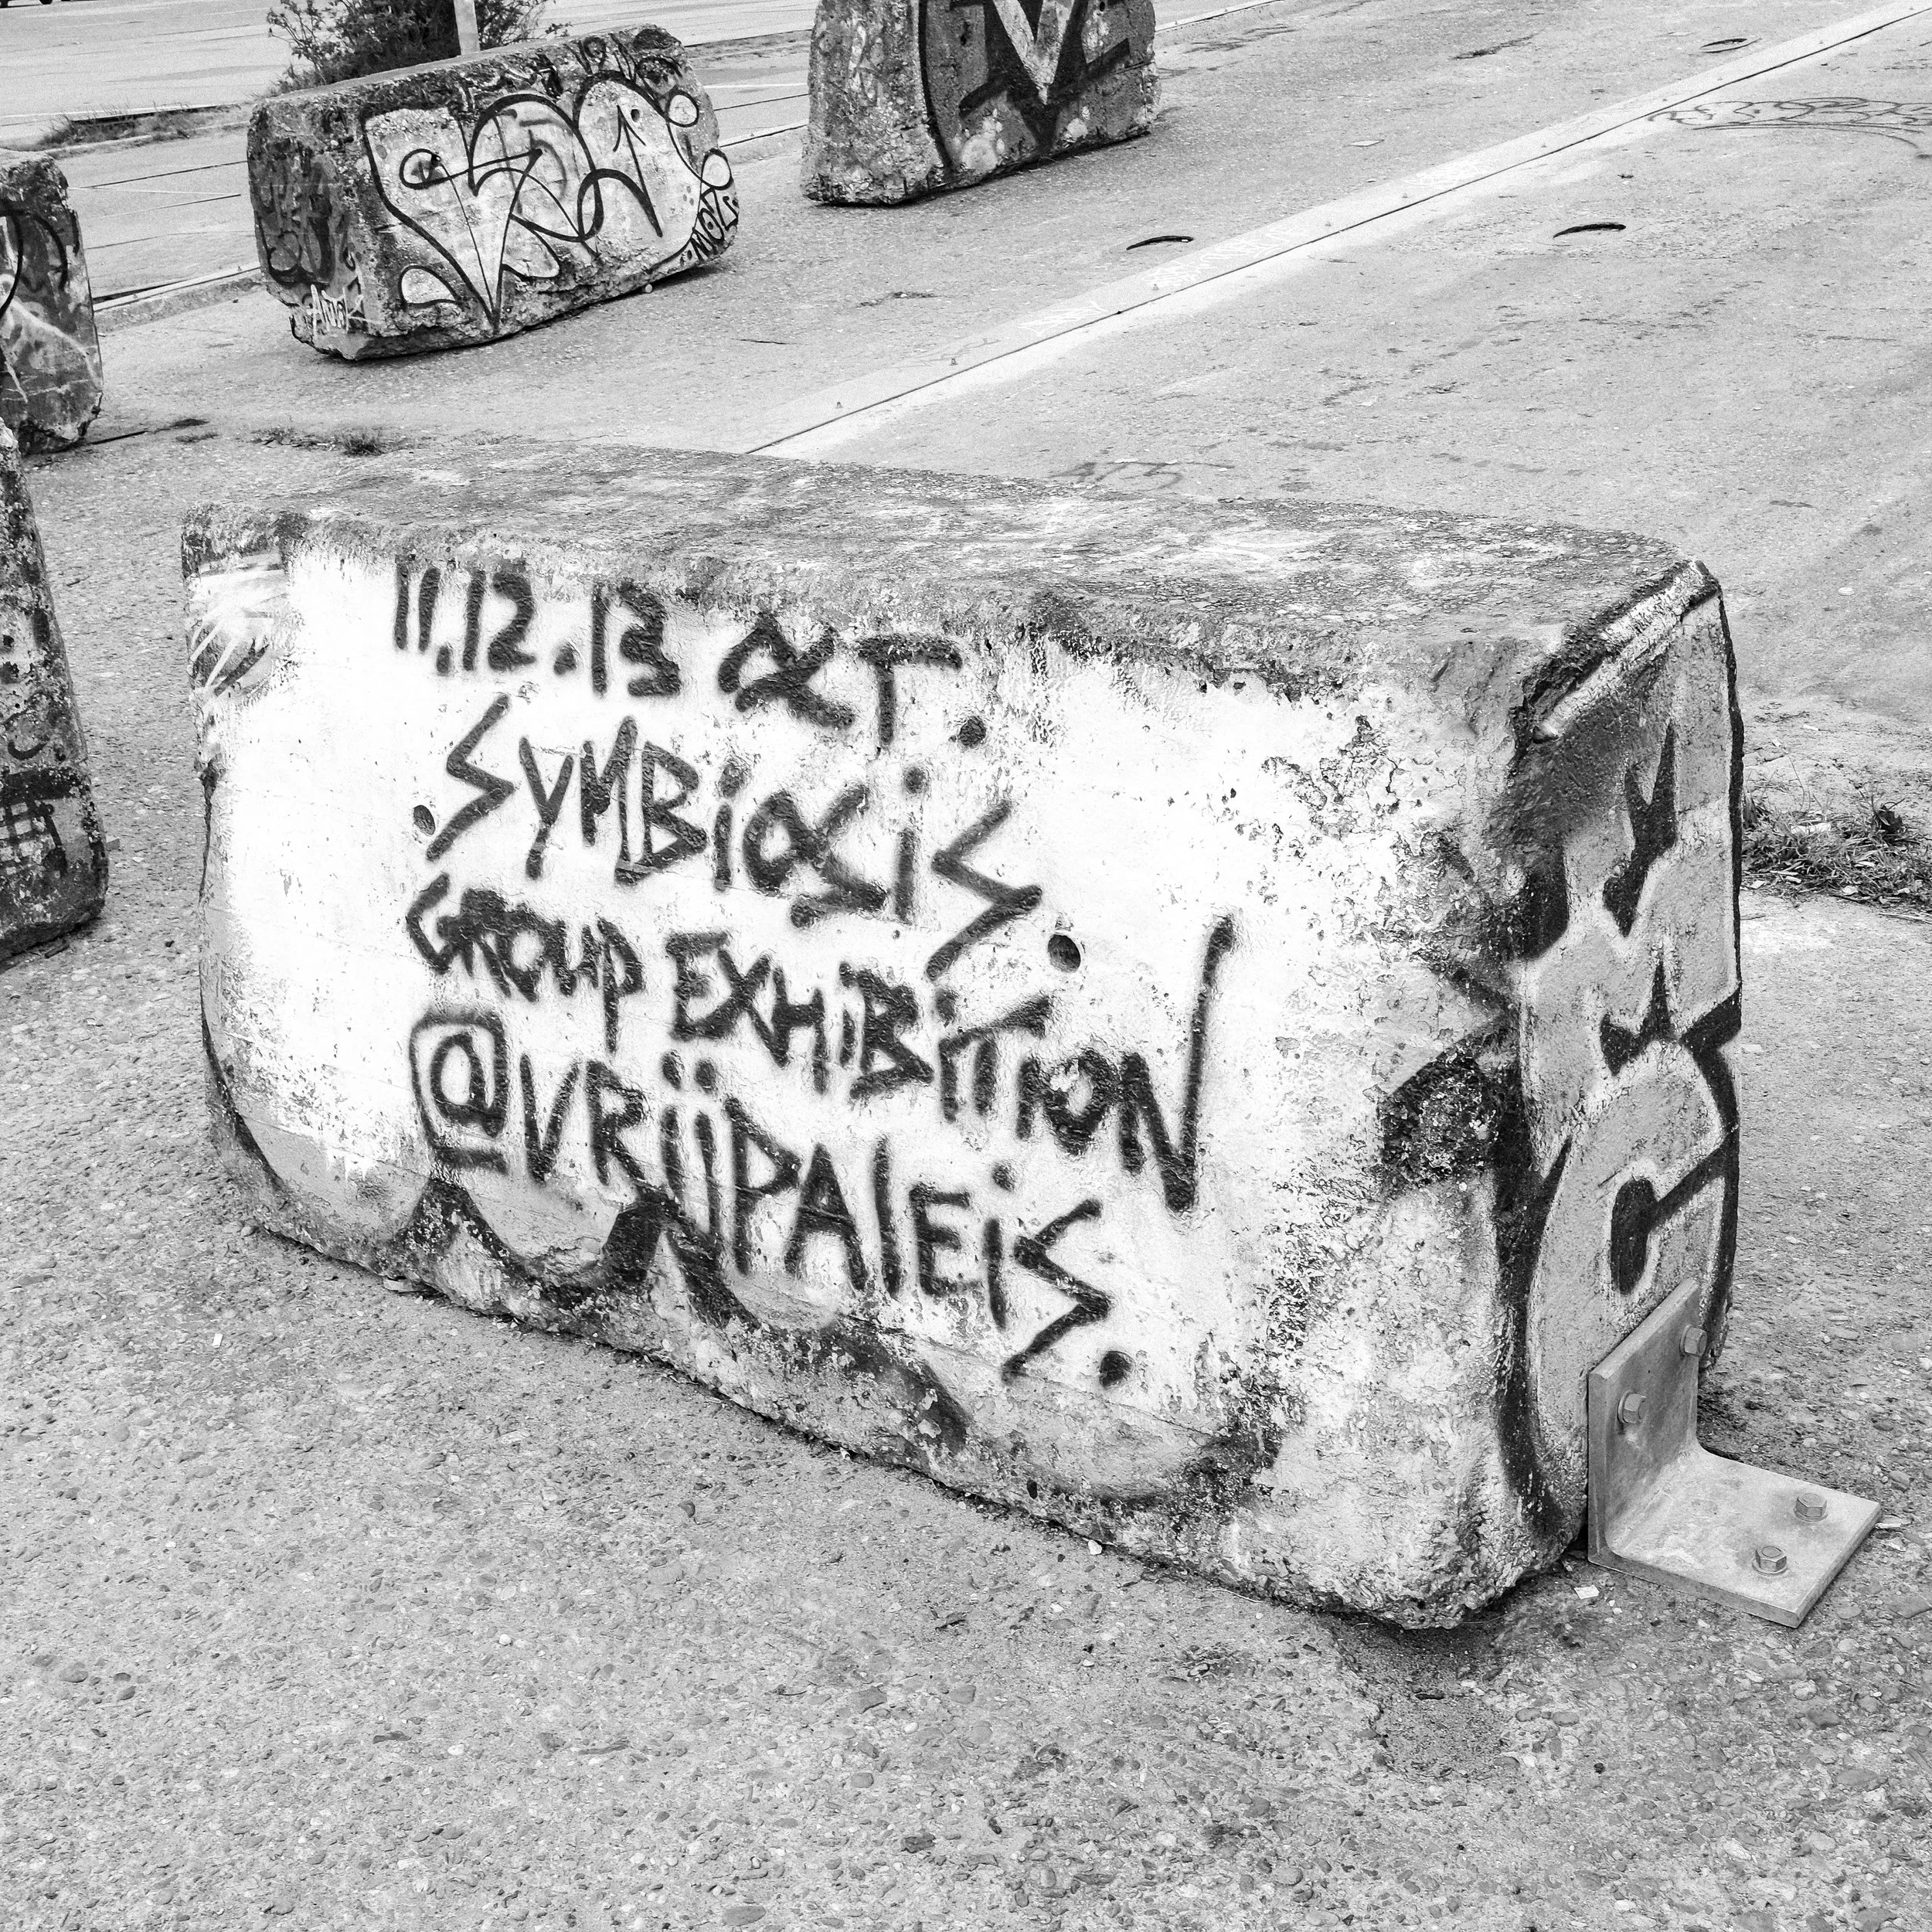 11.12.13 OCT.
SYMBiOSiS.
GROUP EXHiBiTION
@VRIJPALEIS.